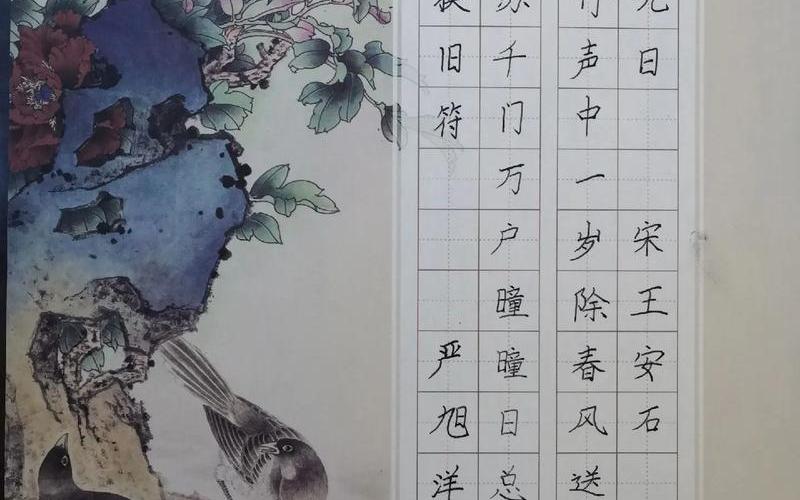 元日 宋 王安石
竹声中一岁除春风送
苏千门万户曈曈日总
换旧符 严旭洋